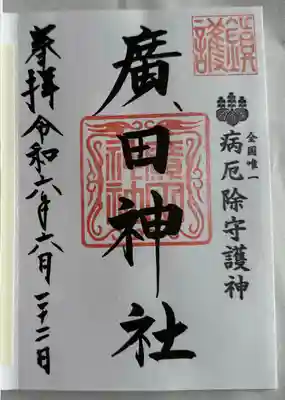 鎮護
全国唯一
病厄除守護神
廣田神社
奉拝 令和六年六月二十二日